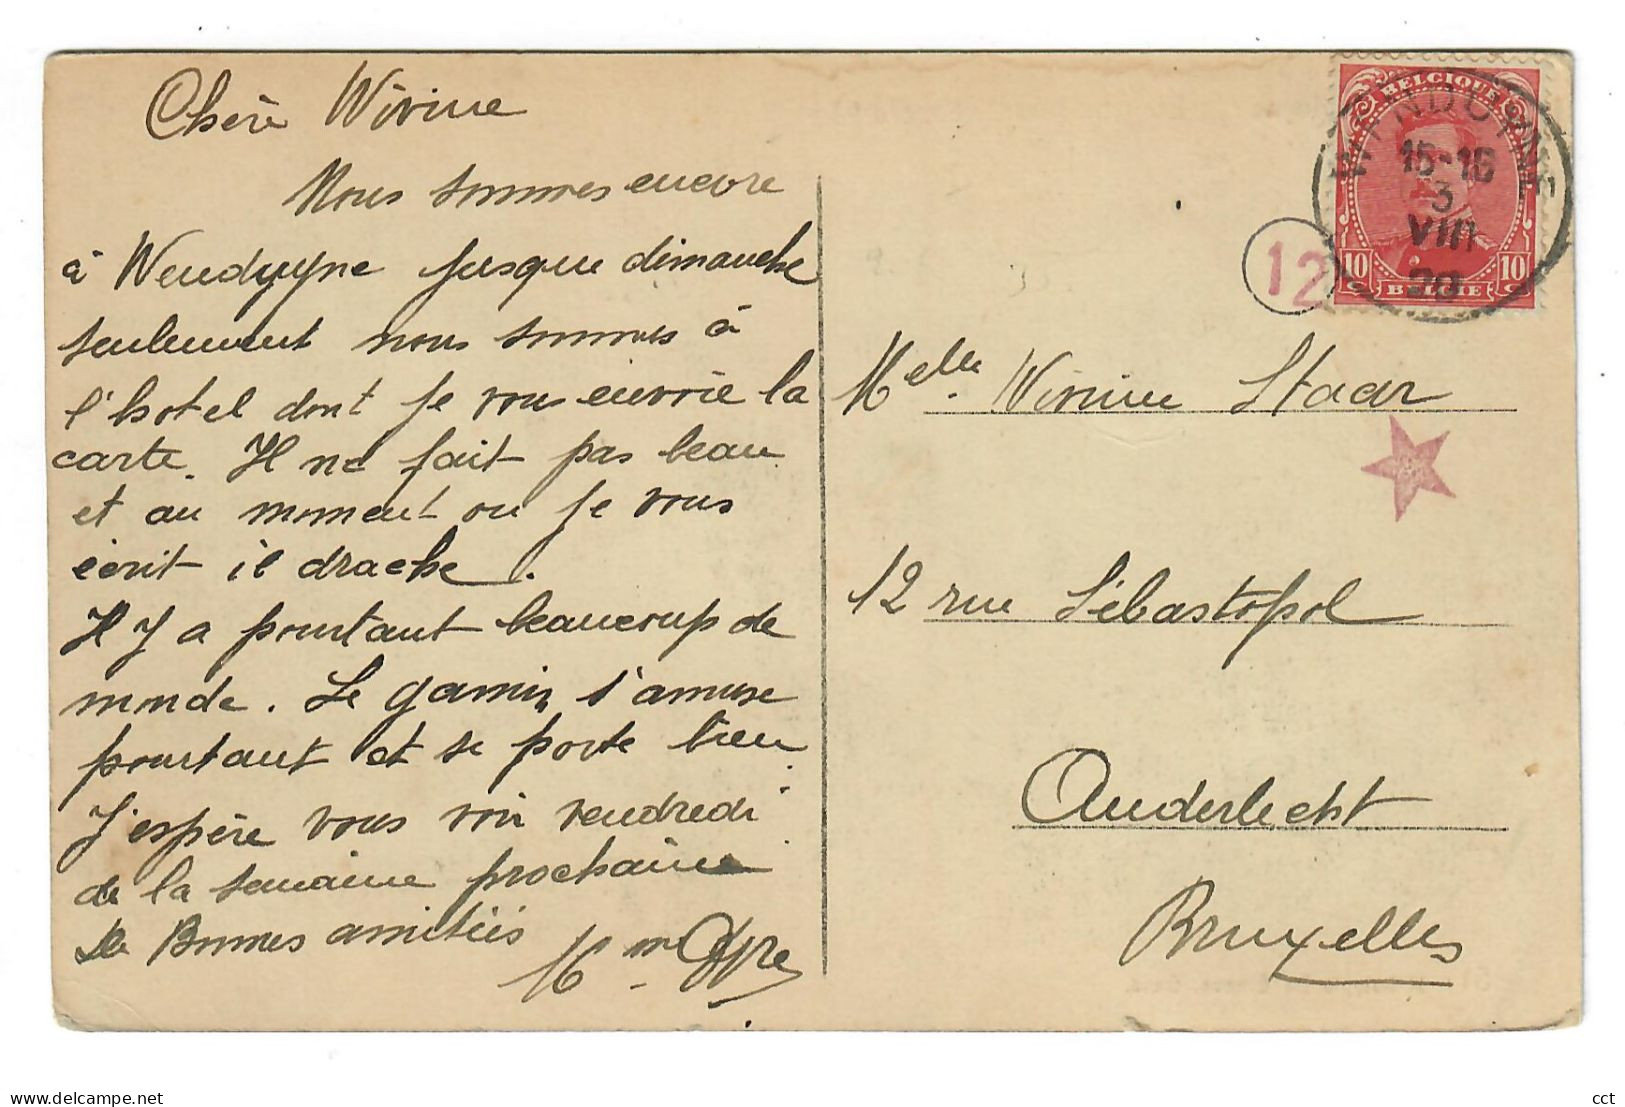 Chère Wivine
Nous sommes encore
à Wenduyne jusque dimanche
seulement nous sommes à
l'hotel dont je vous envoie la
carte. Il ne fait pas beau
et au moment ou je vous
écrit il drache.
Il y a pourtant beaucoup de
monde. Le gamin s'amuse
pourtant et se porte bien.
J'espère vous voir vendredi
de la semaine prochaine
De Bonnes amitiés
Mme
BELGIQUE
WENDUYNE
15-16
3
VIII
20
10 10
C BELGIE C
12
Melle Wivine Staar
12 rue Sébastopol
Anderlecht
Bruxelles
cct